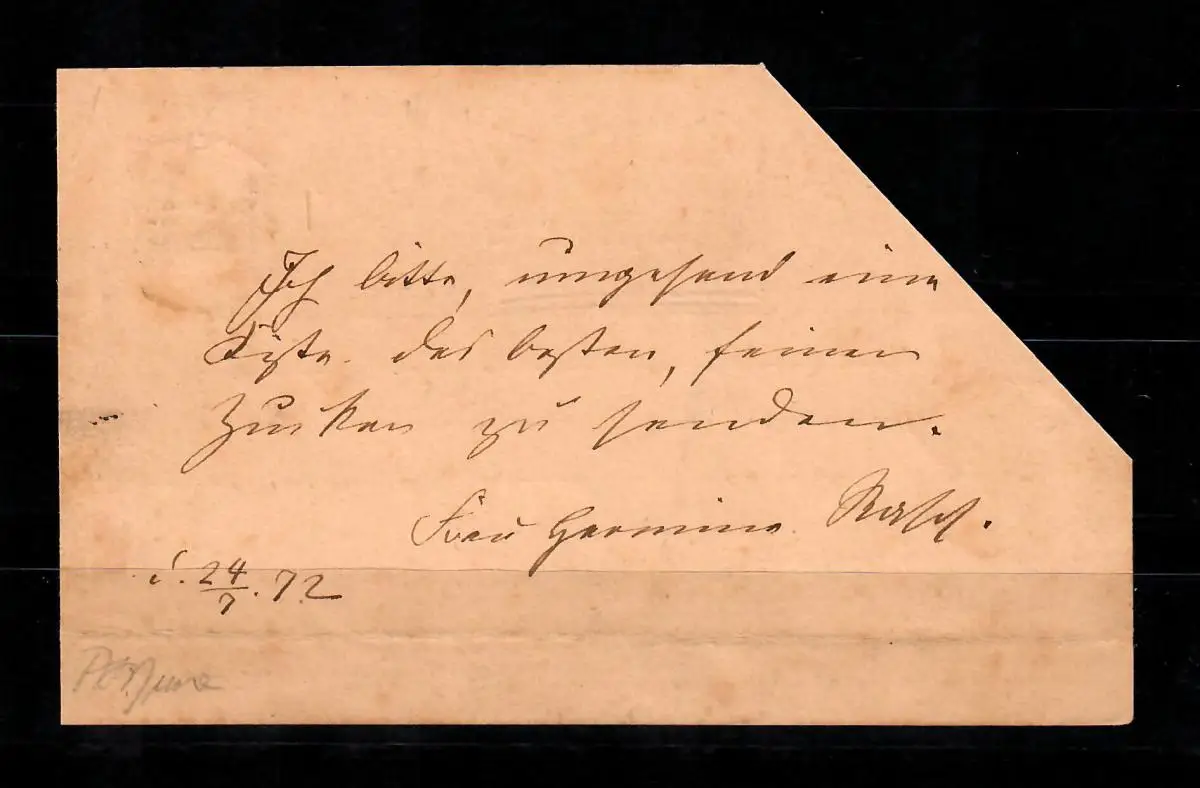 Ich bitte, umgehend eine
Kiste des besten, feinen
Zucker zu senden.
Frau Hermine
d. 24/7. 72